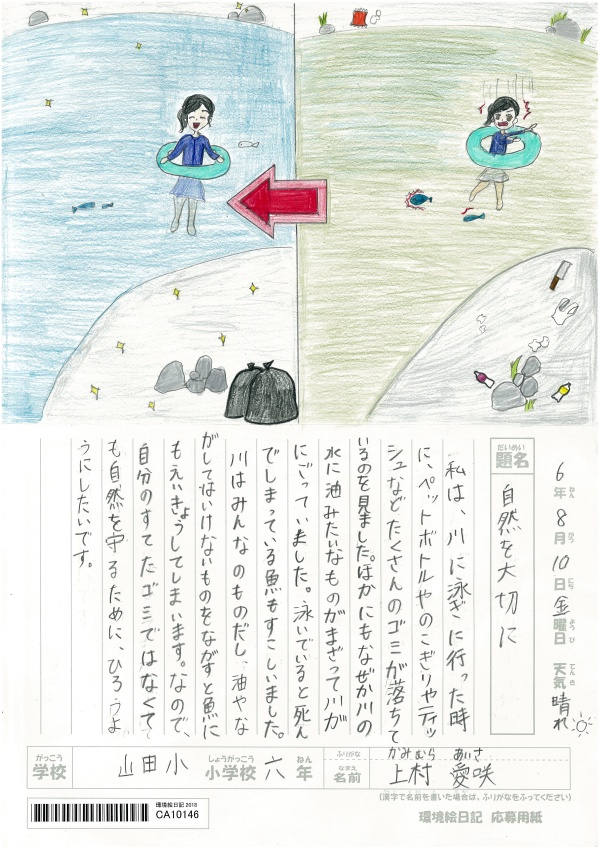 6年8月10日金曜日 天気晴れ
ねん がつ にち ようび てんき
だいめい
題名 自然を大切に
私は、川に泳ぎに行った時
に、ペットボトルやのこぎりやティッ
シュなどたくさんのゴミが落ちて
いるのを見ました。ほかにもなぜか川の
水に油みたいなものがまざって川が
にごっていました。泳いでいると死ん
でしまっている魚もすこしいました。
川はみんなのものだし、油やな
がしてないけないものをながすと魚に
もえいきょうしてしまいます。なので、
自分のすてたゴミではなくて
も自然を守るために、ひろうよ
うにしたいです。
がっこう しょうがっこう ねん
学校 山田小 小学校 六年
ふりがな かみむら あいさ
なまえ
名前 上村 愛咲
(漢字で名前を書いた場合は、ふりがなをふってください)
環境絵日記 2018
CA10146
環境絵日記 応募用紙